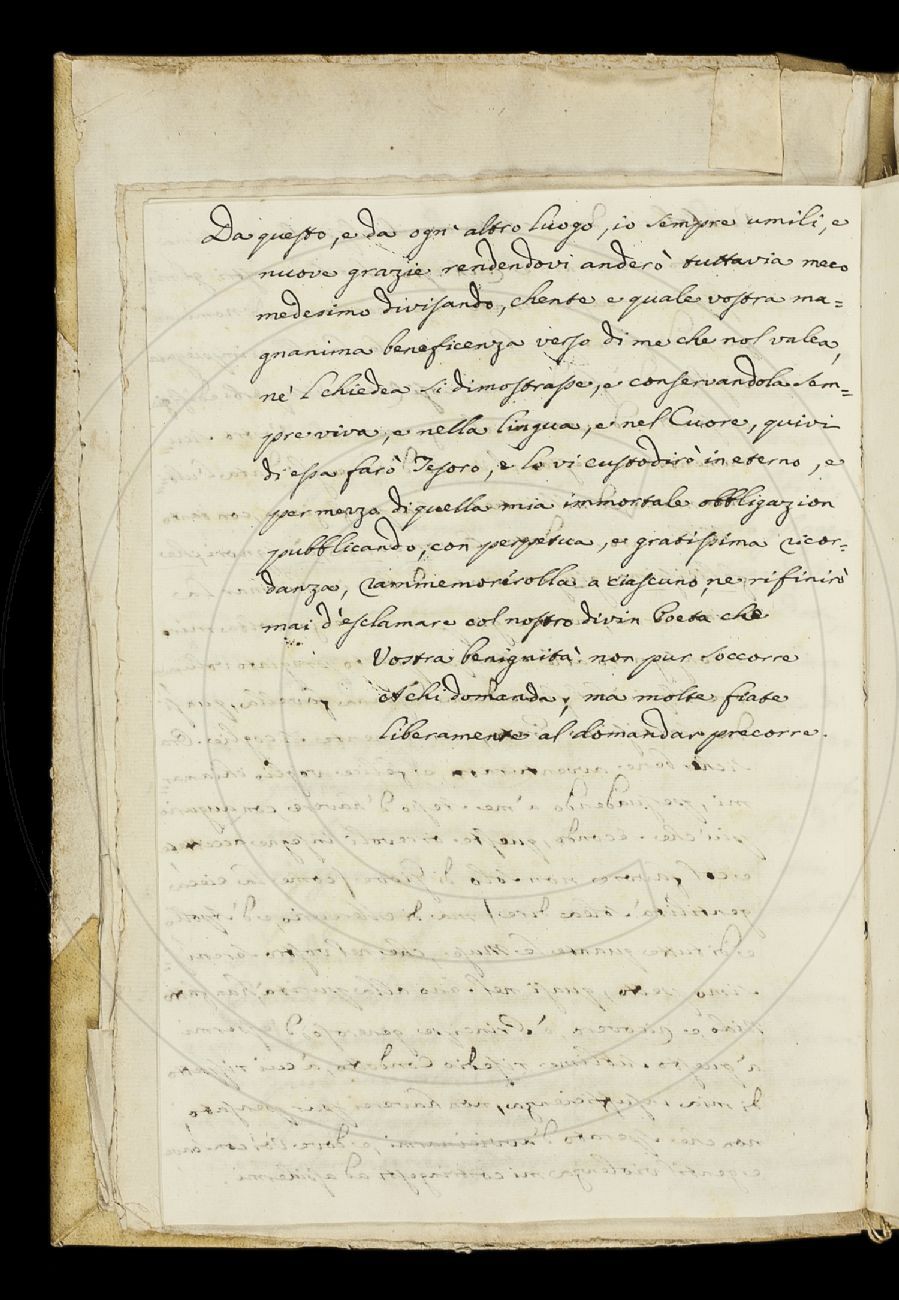 Da questo, e da ogn' altro luogo, io sempre umili, e
nuove grazie rendendovi anderò tuttavia meco
medesimo divisando, chente e quale vostra ma=
gnanima beneficenza verso di me che nol valea,
ne' l chiedea si dimostrasse, e conservandola sem=
pre viva, e nella lingua, e nel Cuore, quivi
di essa farò Tesoro, e lo vi custodirò in eterno, e
per mezzo di quella mia immortale obbligazion
pubblicando, con perpetua, e gratissima ricor=
danza, rammemorerolla a ciascuno, ne rifinirò
mai d'esclamare col nostro divin Poeta che
Vostra benignità non pur soccorre
A chi domanda, ma molte fiate
Liberamente al domandar precorre.